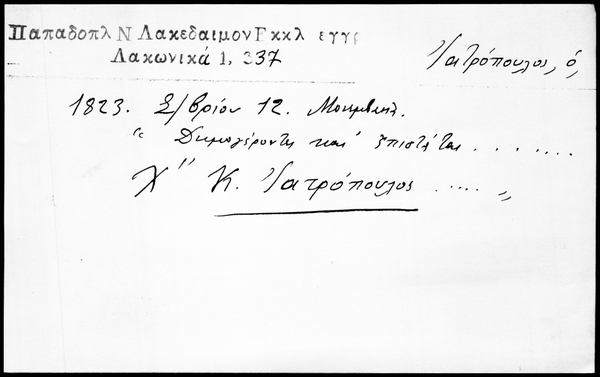 Παπαδοπλ Ν Λακεδαιμον Εκκλ εγγρ
Λακωνικά 1, 337
Ἰατρόπουλος, ὁ,
1823. Σ/βρίου 12. Μονεμβασ.
"Οι Δημογέροντες καὶ ἐπιστάται . . . . . . .
Χ" Κ. Ἰατρόπουλος ..... "